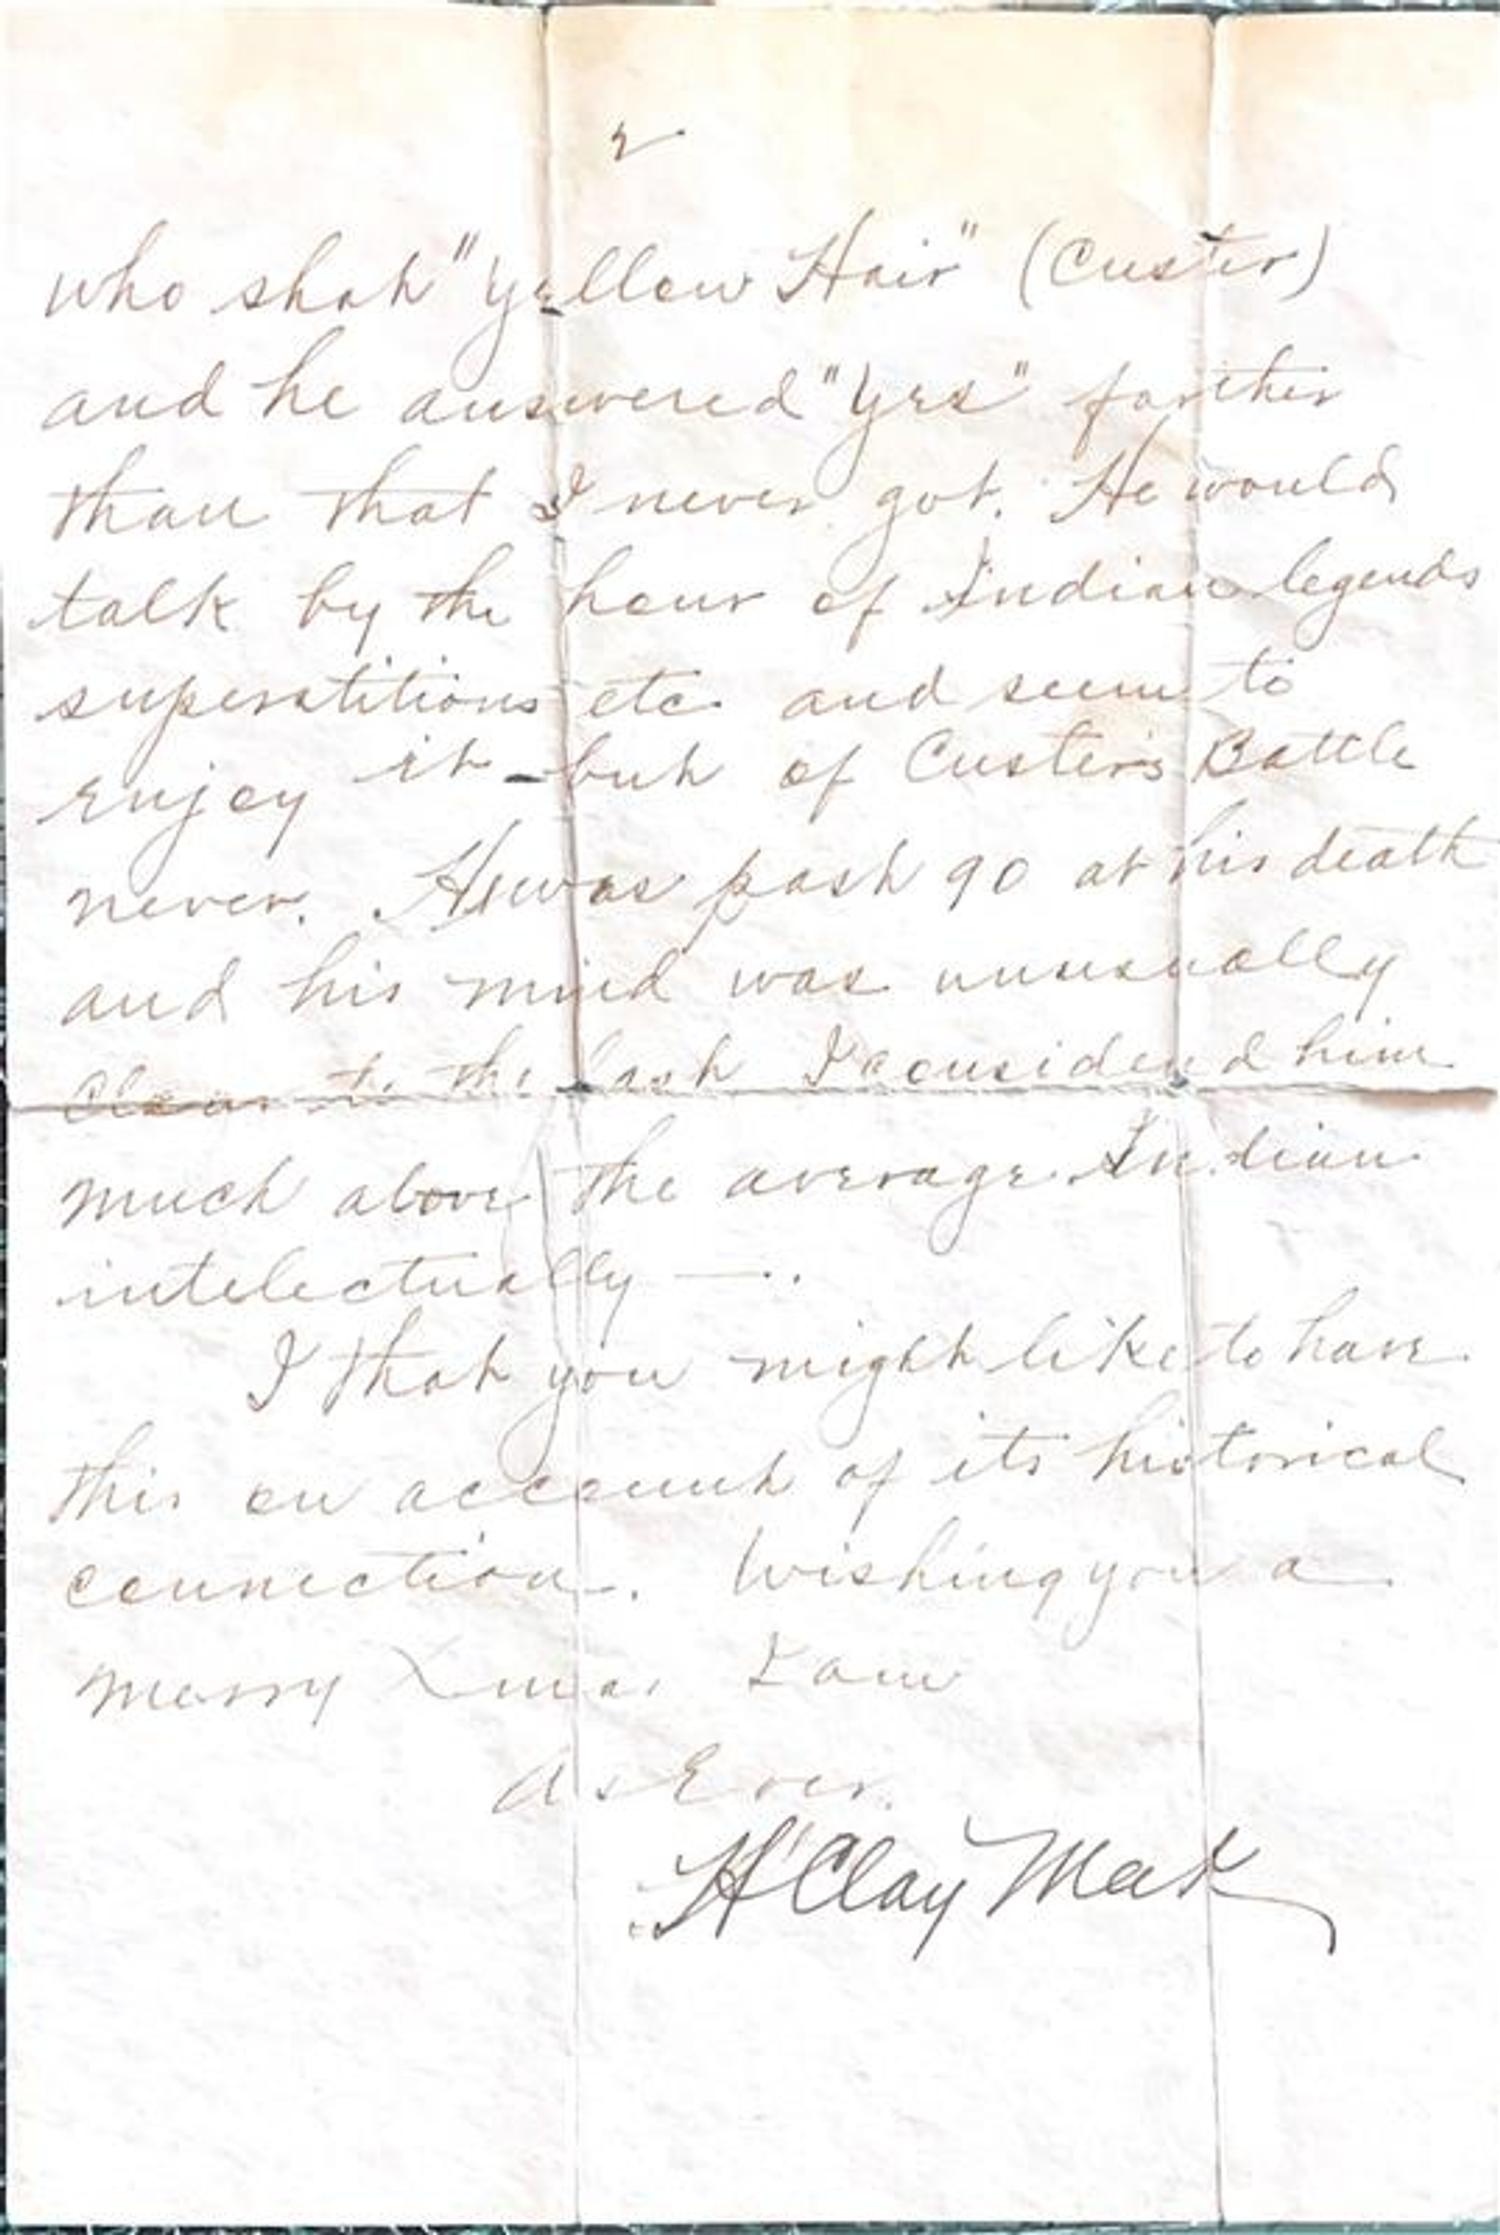 2
who shot "Yellow Hair" (Custer)
and he answered "Yes" farther
than that I never got. He would
talk by the hour of Indian legends
superstitions etc. and seem to
enjoy it - but of Custer's Battle
never. He was past 90 at his death
and his mind was unusually
clear to the last I considered him
much above the average Indian
intelectually —..
I that you might like to have
this on account of its historical
connection. Wishing you a
merry Xmas I am
As Ever.
H Clay